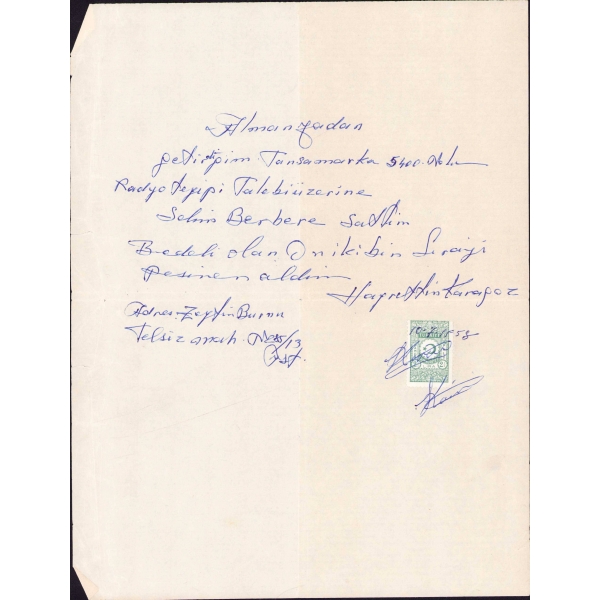 Almanyadan
getirtiğim Tansamarka 5400. Nolu
Radyo teyipi Talebiüzerine
Selim Berbere Sattim
Bedeli olan Onikibin Lirayi
Pesinen aldim
Hayrettin Karagoz
Adres Zeytin Burnu
Telsiz mah.